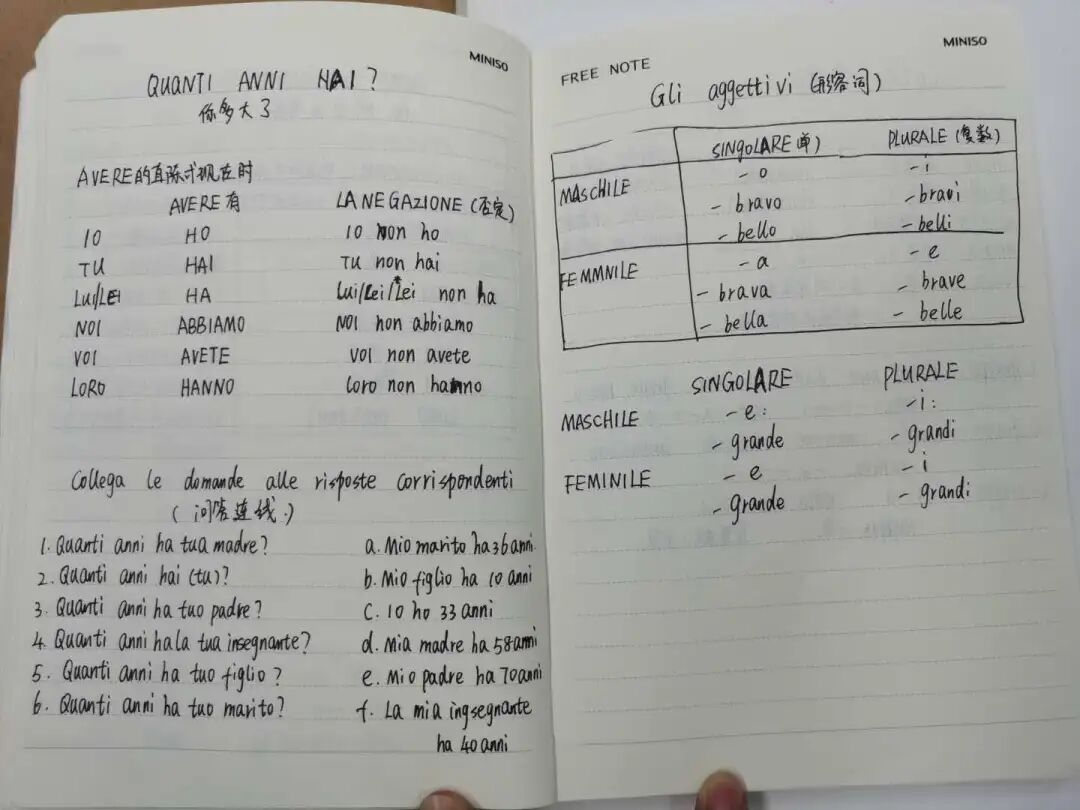 MINISO
QUANTI ANNI HAI?
你多大了
AVERE的直陈式现在时
AVERE有 LA NEGAZIONE (否定)
IO HO IO non ho
TU HAI TU non hai
Lui/LEI HA Lui/Lei/Lei non ha
NOI ABBIAMO NOI non abbiamo
VOI AVETE VOI non avete
LORO HANNO Loro non hanno
Collega le domande alle risposte corrispondenti
(问答连线.)
1. Quanti anni ha tua madre? a. Mio marito ha 36 anni.
2. Quanti anni hai (tu)? b. Mio figlio ha 10 anni
3. Quanti anni ha tuo padre? C. IO ho 33 anni
4. Quanti anni ha la tua insegnante? d. Mia madre ha 58 anni
5. Quanti anni ha tuo figlio? e. Mio padre ha 70 anni
6. Quanti anni ha tuo marito? f. La mia ingsegnante
ha 40 anni
MINISO
FREE NOTE
Gli aggettivi (形容词)
SINGOLARE (单) PLURALE (复数)
MASCHILE - o - i
- bravo - bravi
- bello - belli
FEMMNILE - a - e
- brava - brave
- bella - belle
SINGOLARE PLURALE
MASCHILE - e: - i:
- grande - grandi
FEMINILE - e - i
- grande - grandi